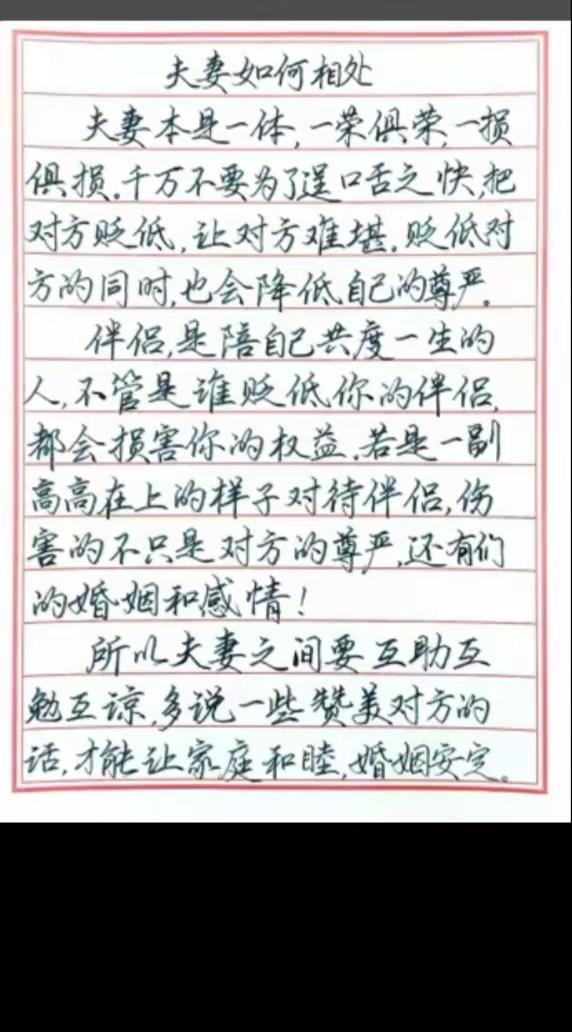 夫妻如何相处
夫妻本是一体,一荣俱荣,一损
俱损。千万不要为了逞口舌之快,把
对方贬低,让对方难堪。贬低对
方的同时,也会降低自己的尊严。
伴侣,是陪自己共度一生的
人,不管是谁贬低你的伴侣,
都会损害你的权益。若是一副
高高在上的样子对待伴侣,伤
害的不只是对方的尊严,还有们
的婚姻和感情!
所以夫妻之间要互助互
勉互谅,多说一些赞美对方的
话,才能让家庭和睦,婚姻安定。